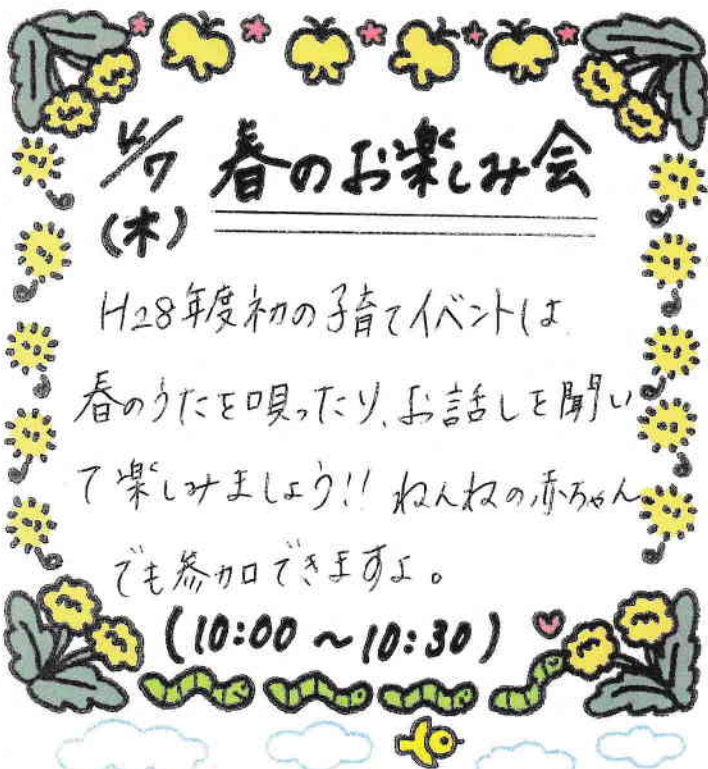 4/7 春のお楽しみ会
(木)
H28年度初の子育てイベントは
春のうたを唄ったり、お話しを聞い
て楽しみましょう!! ねんねの赤ちゃん
でも参加できますよ。
(10:00 ~ 10:30)